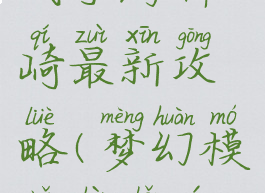 qí zuì xīn gōng
崎最新攻
lüè mèng huàn mó
略(梦幻模